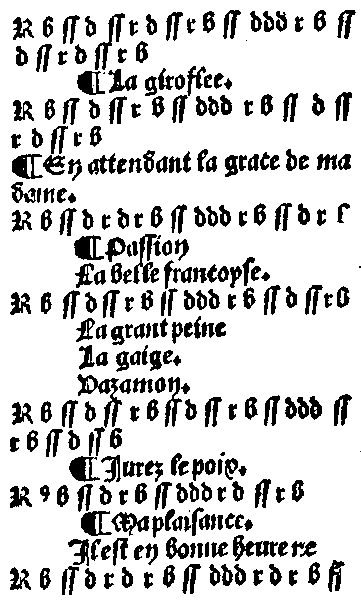 R b ſſ d ſſ r d ſſ r b ſſ ddd r b ſſ
d ſſ r d ſſ r b
¶ La giroflee.
R b ſſ d ſſ r b ſſ ddd r b ſſ d ſſ
r d ſſ r b
¶ En attendant la grace de ma
dame.
R b ſſ d r d r b ſſ ddd r b ſſ d r ſ
¶ Paſſion
La belle francoyſe.
R b ſſ d ſſ r b ſſ ddd r b ſſ d ſſ r b
La grant peine
La gaige.
Bazamon.
R b ſſ d ſſ r b ſſ d ſſ r b ſſ ddd ſſ
r b ſſ d ſſ b
¶ Iurez le poix.
R 9 b ſſ d r b ſſ ddd r d ſſ r b
¶ Ma plaiſance.
Il eſt en bonne heure ne
R b ſſ d r d r b ſſ ddd r d r b ſſ